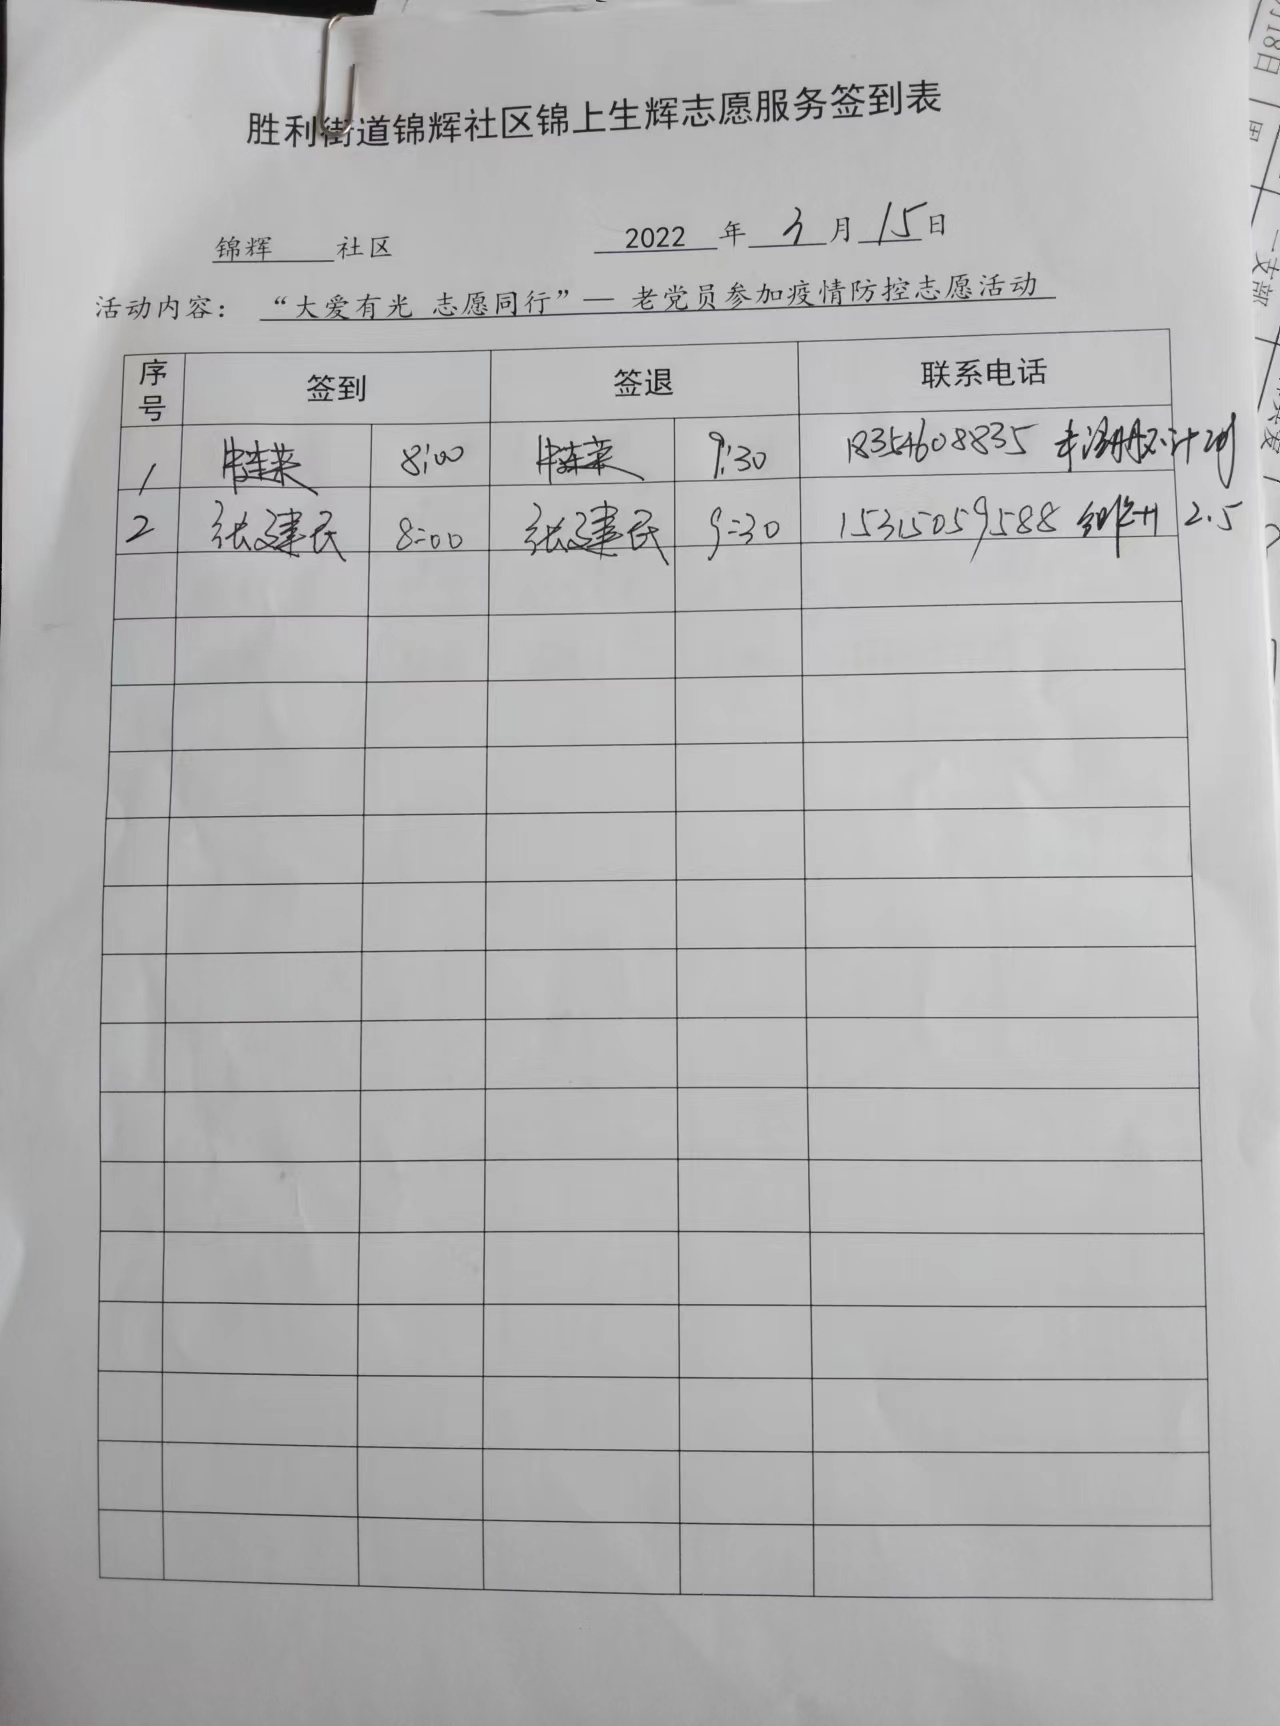 胜利街道锦辉社区锦上生辉志愿服务签到表
锦辉 社区 2022 年 3 月 15 日
活动内容： “大爱有光 志愿同行”— 老党员参加疫情防控志愿活动
序号 签到 签退 联系电话
1 8:00 9:30 18354608835
2 张建民 8:00 张建民 9:30 15315059588 2.5
18日
二支部